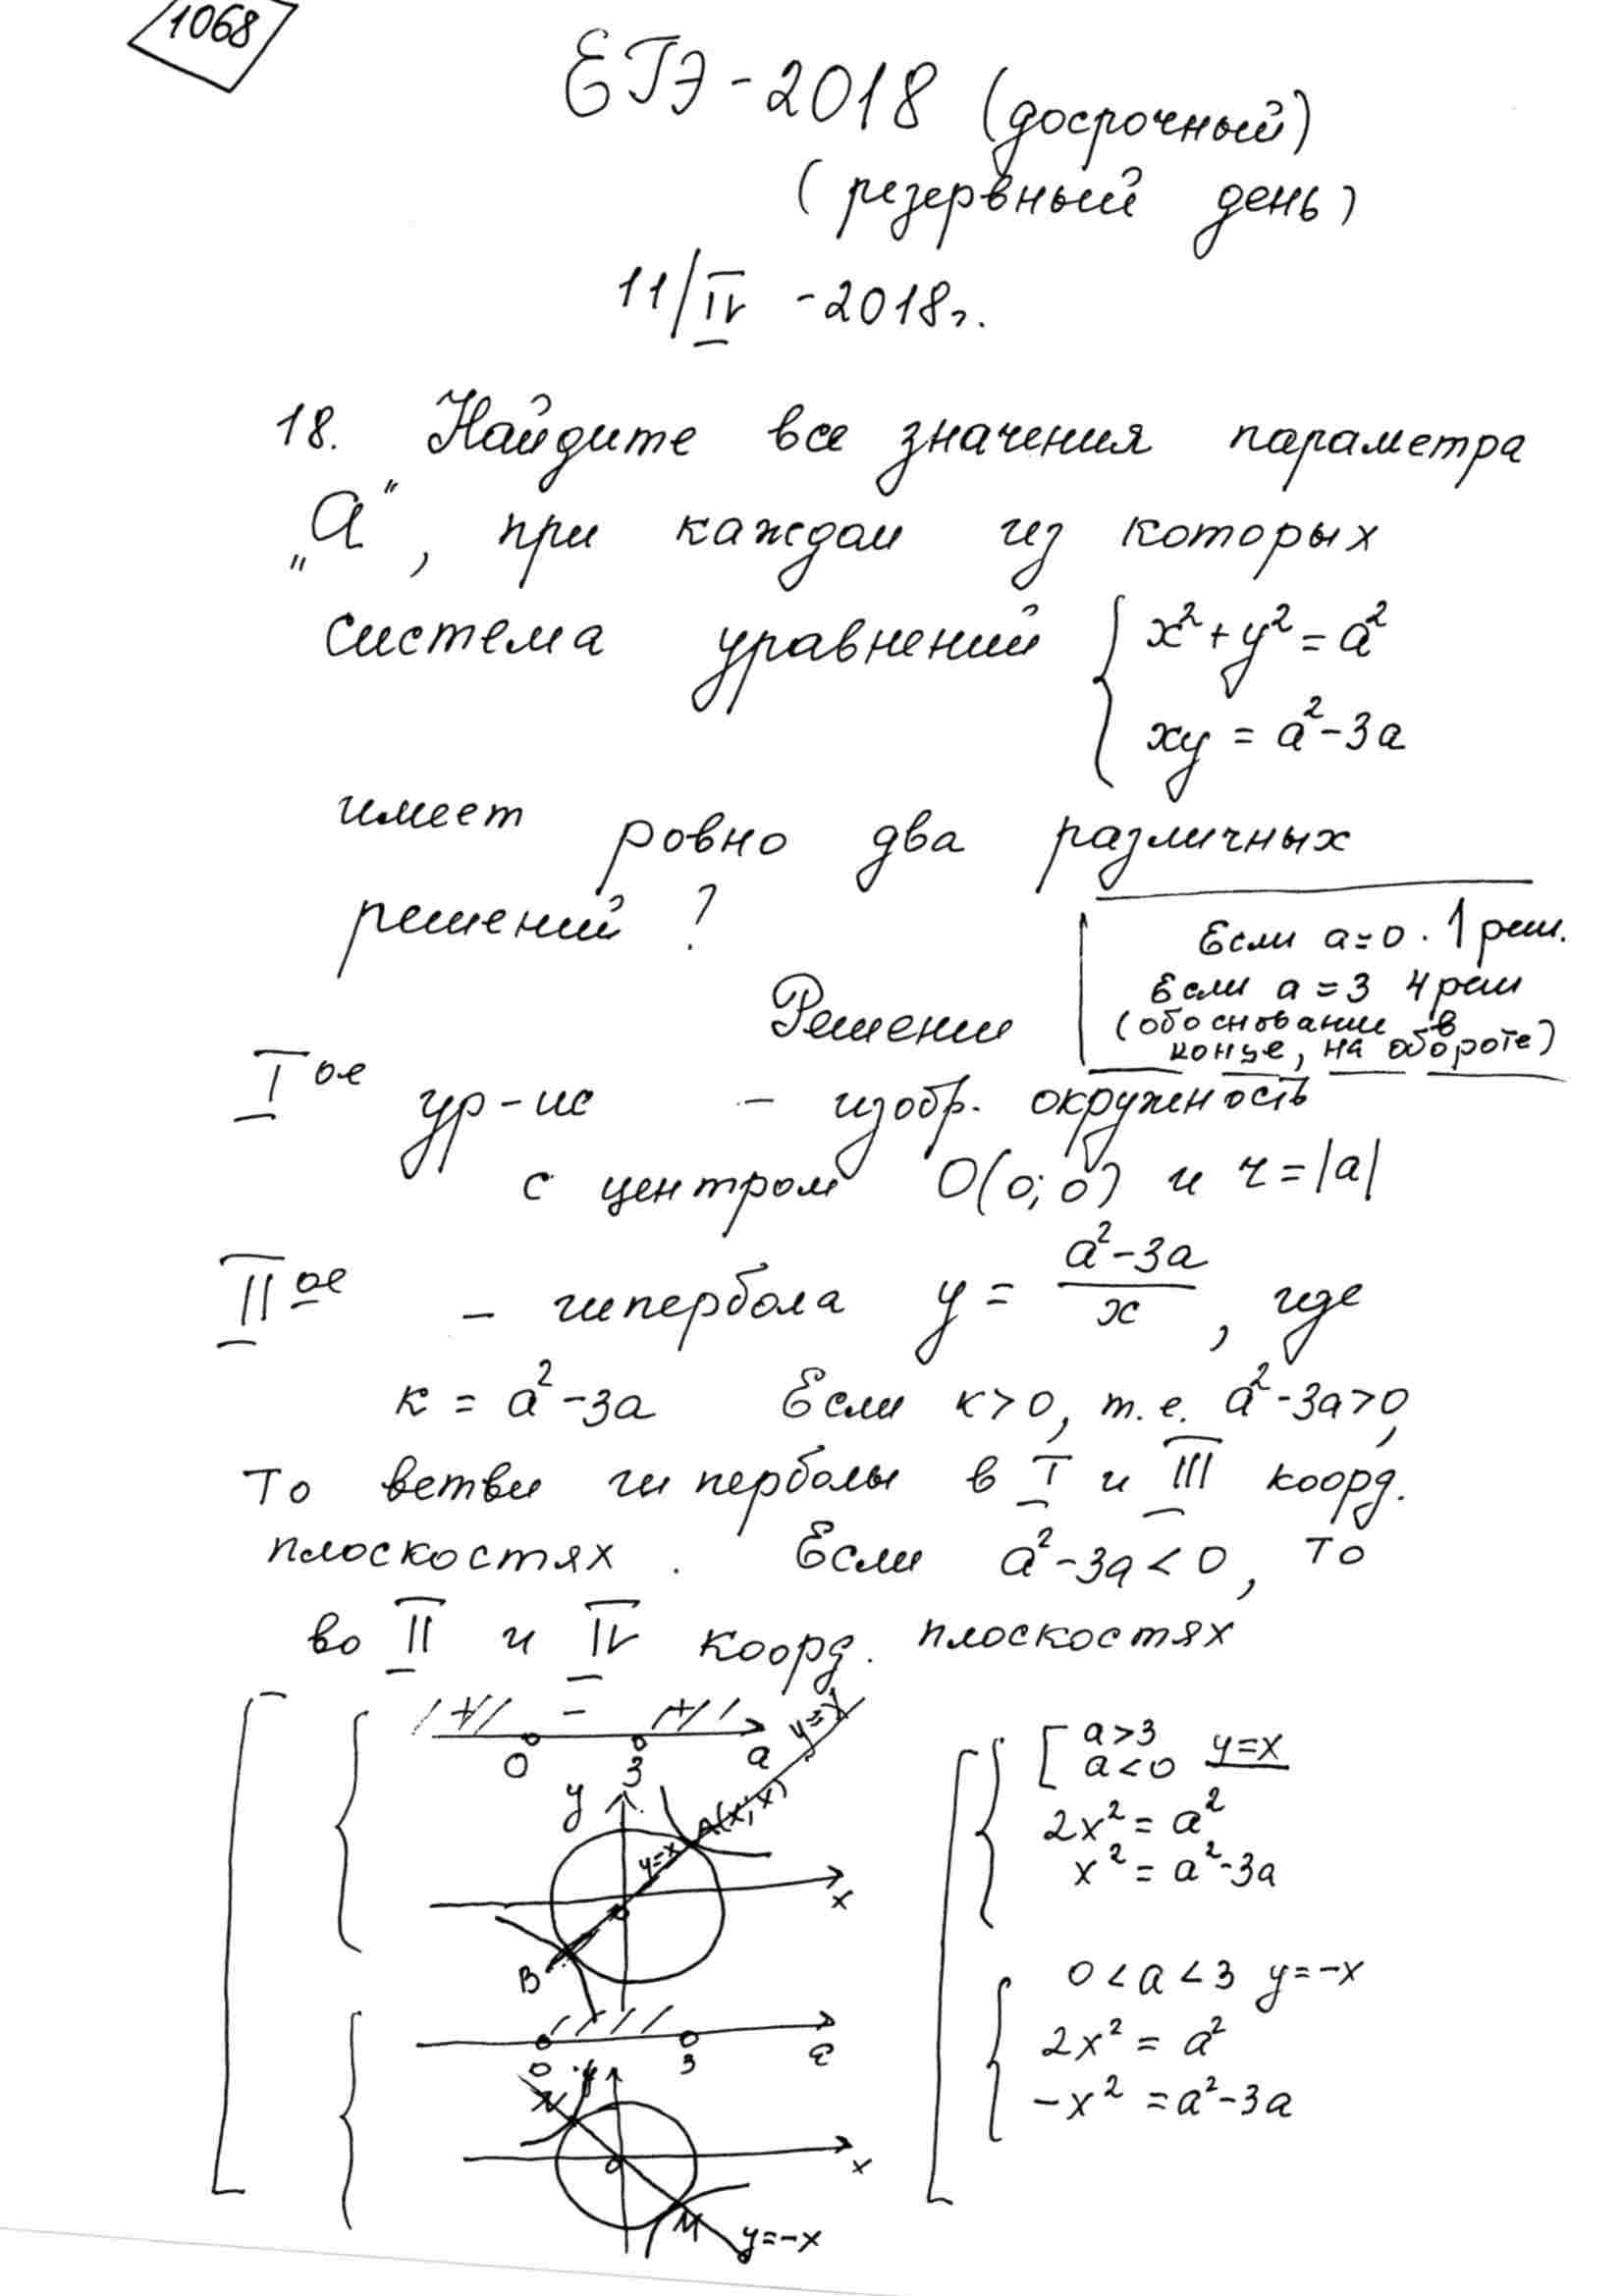 1068
ЕГЭ-2018 (досрочный)
(резервный день)
11/IV -2018г.
18. Найдите все значения параметра
„a“, при каждом из которых
система уравнений { x²+y²=a²
xy = a²-3a
имеет ровно два различных
решений ?
Если a=0. 1 реш.
Если a=3 4 реш
(обоснование в
конце, на обороте)
Решение
I ое ур-ие - изобр. окружность
с центром O(0;0) и r=|a|
II ое - гипербола y = (a²-3a)/x, где
к = a²-3a Если к>0, т.е. a²-3a>0,
то ветви гиперболы в I и III коорд.
плоскостях. Если a²-3a<0, то
во II и IV коорд. плоскостях
+ - +
0 3 a
y y=x
A(x;x)
y=x
x
B
0 3 a
y
x
M
y=-x
a>3
a<0 y=x
2x²=a²
x²=a²-3a
0<a<3 y=-x
2x²=a²
-x²=a²-3a